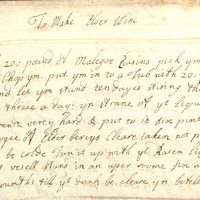 To Make Elder Wine
20: pound of Malegoe Rasins pick ym
Chop ym put ym in to a Tub with 20:
let ym stand ten dayes stiring th
three a day: yn strane of ye Liqu
very hard: & put to it five pint
of Elder bereys Cleare taken not
be colde Tun it up with ye Rasen Liq
vesell stand in an
till yt be cleare yn botell